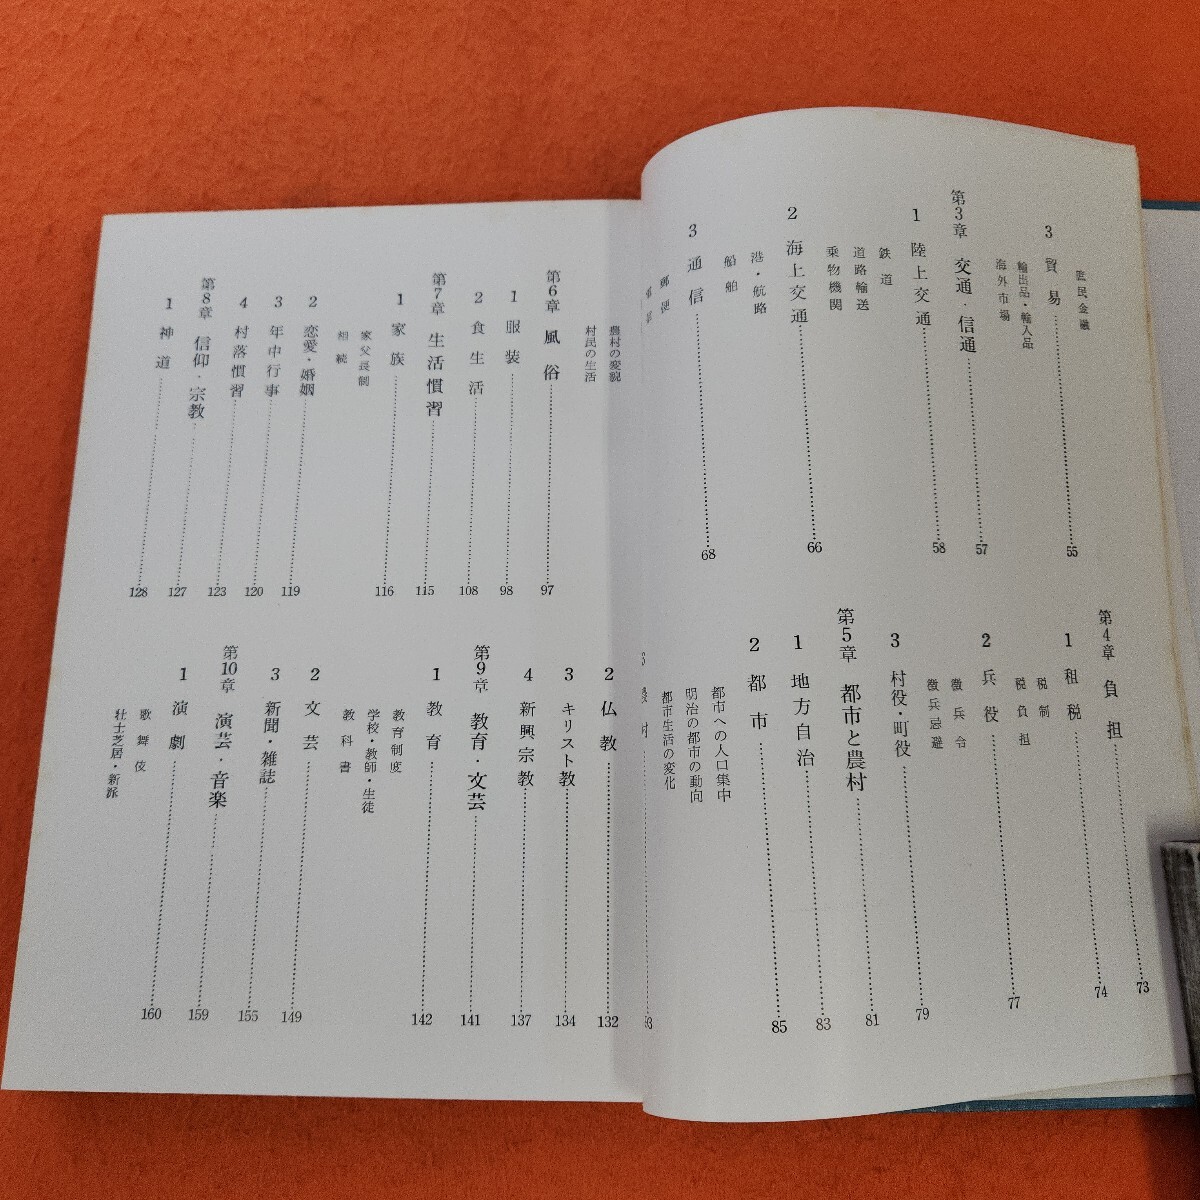 庶民金融
3 貿易 55
輸出品・輸入品
海外市場
第3章 交通・信通 57
1 陸上交通 58
鉄道
道路輸送
乗物機関
2 海上交通 66
港・航路
船舶
3 通信 68
郵便
第4章 負担 73
1 租税 74
税制
税負担
2 兵役 77
徴兵令
徴兵忌避
3 村役・町役 79
第5章 都市と農村 81
1 地方自治 83
2 都市 85
都市への人口集中
明治の都市の動向
都市生活の変化
93
農村の変貌
村民の生活
第6章 風俗 97
1 服装 98
2 食生活 108
第7章 生活慣習 115
1 家族 116
家父長制
相続
2 恋愛・婚姻 119
3 年中行事 120
4 村落慣習 123
第8章 信仰・宗教 127
1 神道 128
2 仏教 132
3 キリスト教 134
4 新興宗教 137
第9章 教育・文芸 141
1 教育 142
教育制度
学校・教師・生徒
教科書
2 文芸 149
3 新聞・雑誌 155
第10章 演芸・音楽 159
1 演劇 160
歌舞伎
壮士芝居・新派